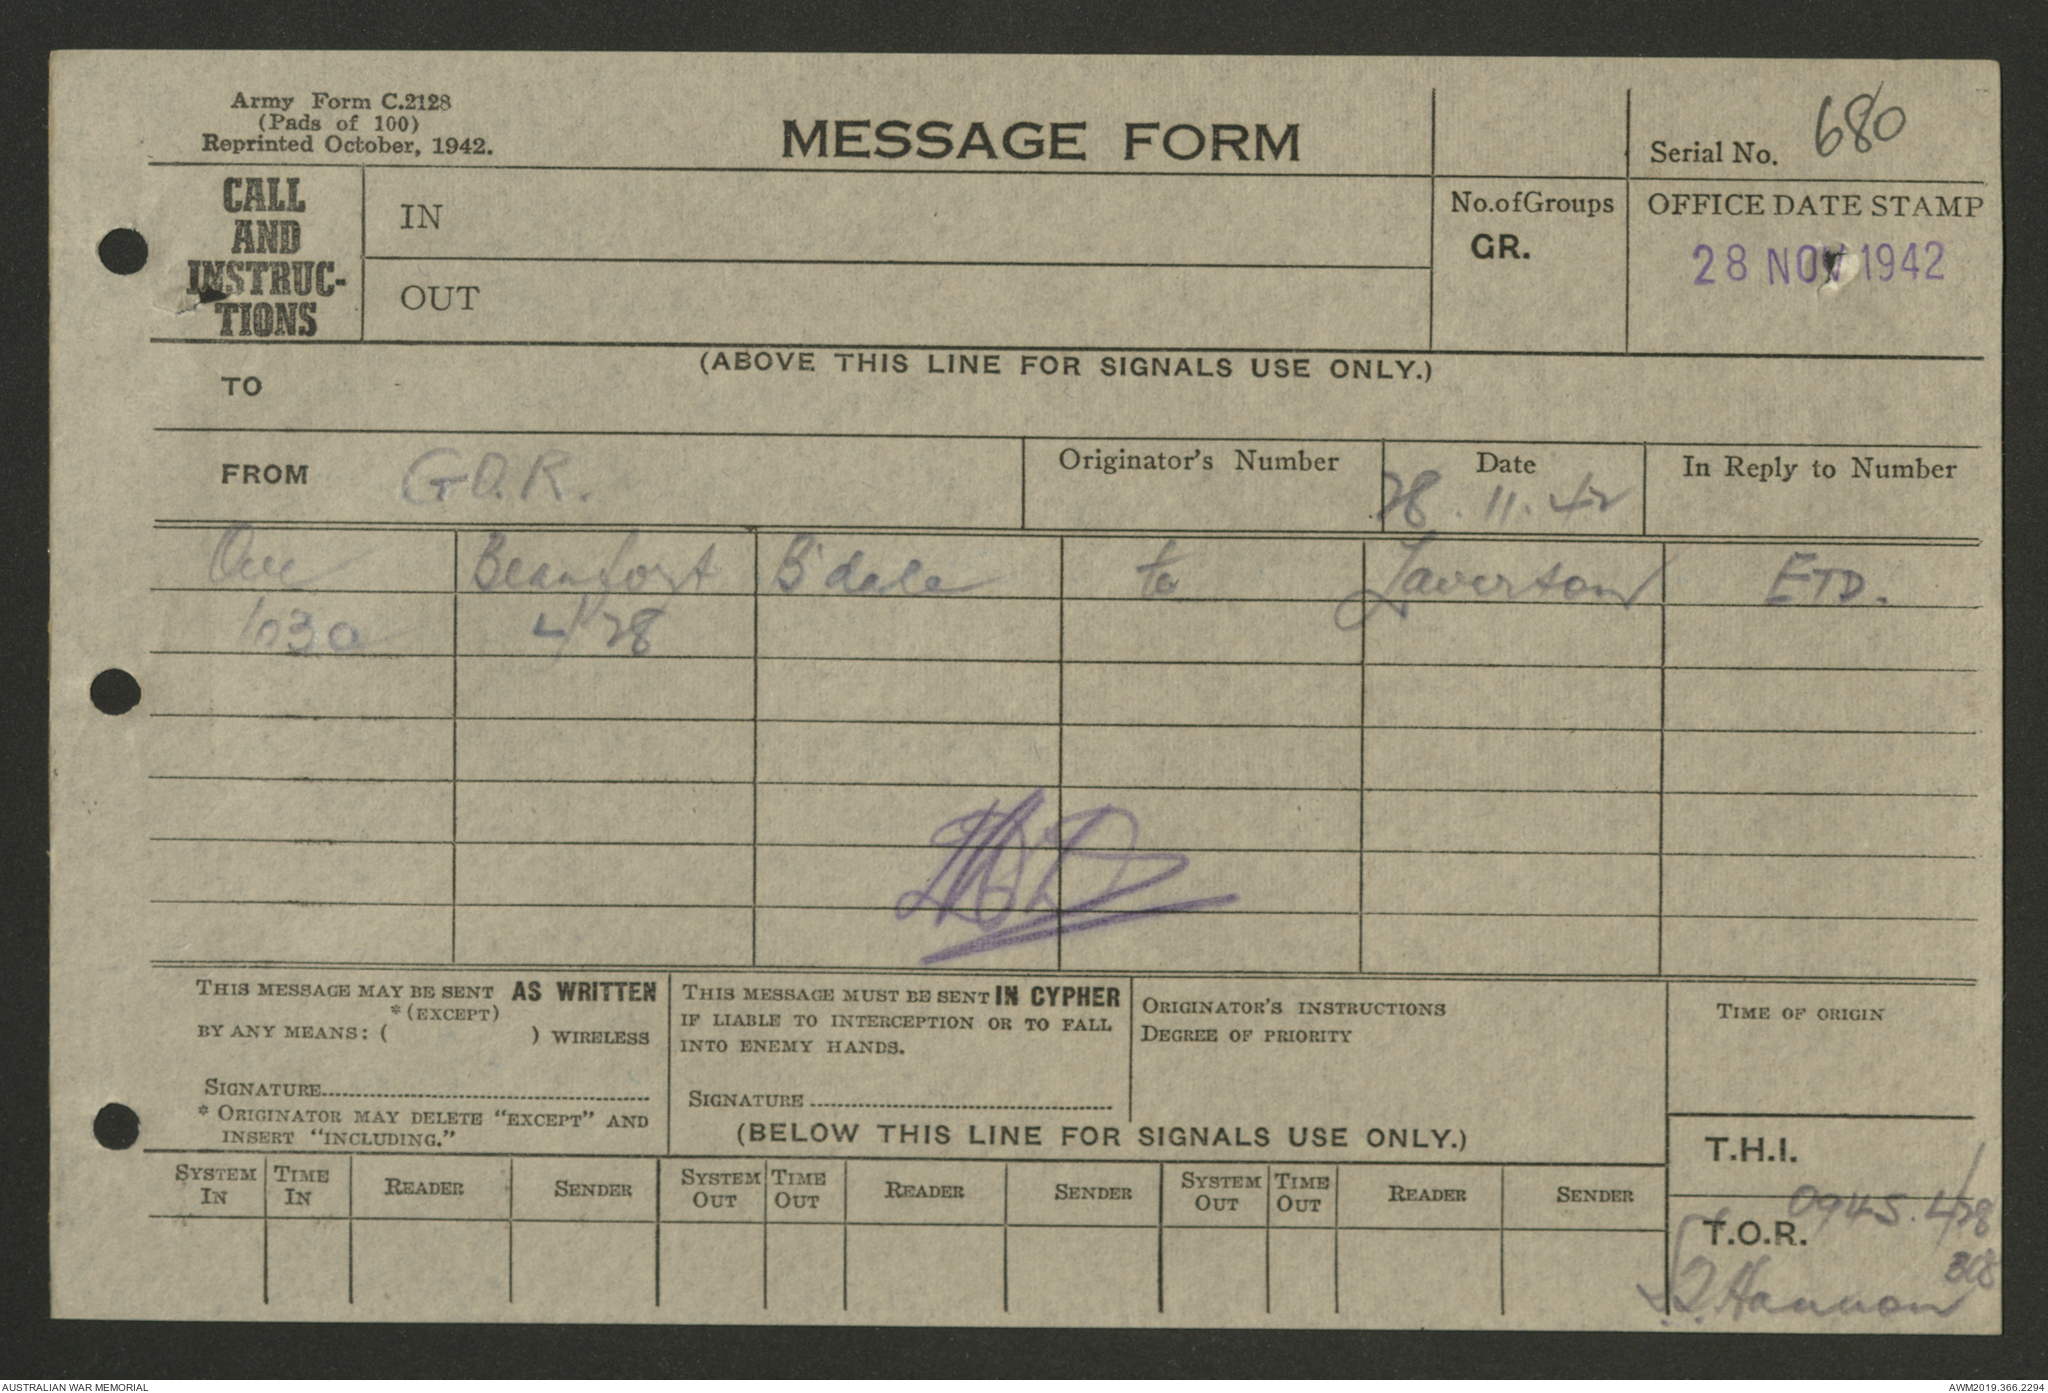 Army Form C.2128
(Pads of 100)
Reprinted October, 1942.
MESSAGE FORM
Serial No. 680
CALL
AND
INSTRUC-
TIONS
IN
OUT
No.ofGroups
GR.
OFFICE DATE STAMP
28 NOV 1942
(ABOVE THIS LINE FOR SIGNALS USE ONLY.)
TO
FROM G.O.R.
Originator's Number
Date
28.11.42
In Reply to Number
One Beaufort B'dale to Laverton ETD.
1030 4/28
THIS MESSAGE MAY BE SENT AS WRITTEN
*(EXCEPT)
BY ANY MEANS: ( ) WIRELESS
SIGNATURE
* ORIGINATOR MAY DELETE "EXCEPT" AND
INSERT "INCLUDING."
THIS MESSAGE MUST BE SENT IN CYPHER
IF LIABLE TO INTERCEPTION OR TO FALL
INTO ENEMY HANDS.
SIGNATURE
ORIGINATOR'S INSTRUCTIONS
DEGREE OF PRIORITY
TIME OF ORIGIN
(BELOW THIS LINE FOR SIGNALS USE ONLY.)
T.H.I.
SYSTEM IN TIME IN READER SENDER SYSTEM OUT TIME OUT READER SENDER SYSTEM OUT TIME OUT READER SENDER
T.O.R. 0945. 4/28
308
Hannon
AUSTRALIAN WAR MEMORIAL
AWM2019.366.2294